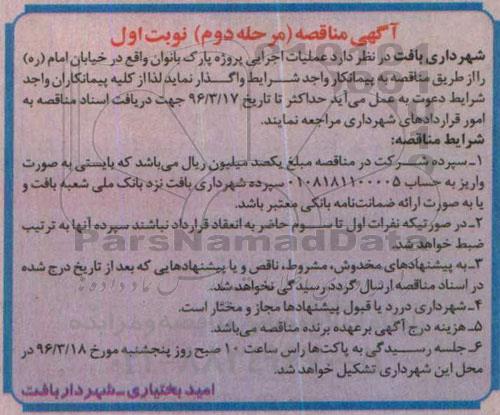 آگهی مناقصه (مرحله دوم) نوبت اول
شهرداری بافت در نظر دارد عملیات اجرایی پروژه پارک بانوان واقع در خیابان امام (ره)
رااز طریق مناقصه به پیمانکار واجد شرایط واگذار نماید لذا از کلیه پیمانکاران واجد
شرایط دعوت به عمل می‌آید حداکثر تا تاریخ ۹۶/۳/۱۷ جهت دریافت اسناد مناقصه به
امور قراردادهای شهرداری مراجعه نمایند.
شرایط مناقصه:
۱ـ سپرده شرکت در مناقصه مبلغ یکصد میلیون ریال می‌باشد که بایستی به صورت
واریز به حساب ۰۱۰۸۱۸۱۱۰۰۰۰۵ سپرده شهرداری بافت نزد بانک ملی شعبه بافت و
یا به صورت ارائه ضمانت‌نامه بانکی معتبر باشد.
۲ـ در صورتیکه نفرات اول تا سوم حاضر به انعقاد قرارداد نباشند سپرده آنها به ترتیب
ضبط خواهد شد.
۳ـ به پیشنهادهای مخدوش، مشروط، ناقص و یا پیشنهادهایی که بعد از تاریخ درج شده
در اسناد مناقصه ارسال گردد رسیدگی نخواهد شد.
۴ـ شهرداری در رد یا قبول پیشنهادها مجاز و مختار است.
۵ـ هزینه درج آگهی بر عهده برنده مناقصه می‌باشد.
۶ـ جلسه رسیدگی به پاکت‌ها راس ساعت ۱۰ صبح روز پنجشنبه مورخ ۹۶/۳/۱۸ در
محل این شهرداری تشکیل خواهد شد.
امید بختیاری ـ شهردار بافت
ParsNamadData